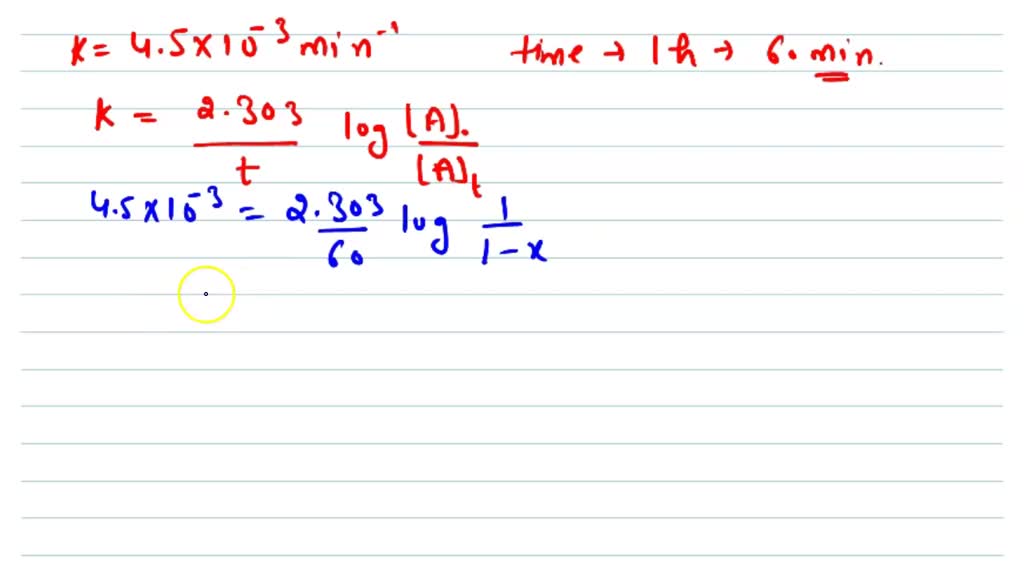 K = 4.5 × 10⁻³ min⁻¹ time → 1 h → 60 min.
K = 2.303 / t log [A]₀ / [A]t
4.5 × 10⁻³ = 2.303 / 60 log 1 / 1 - x